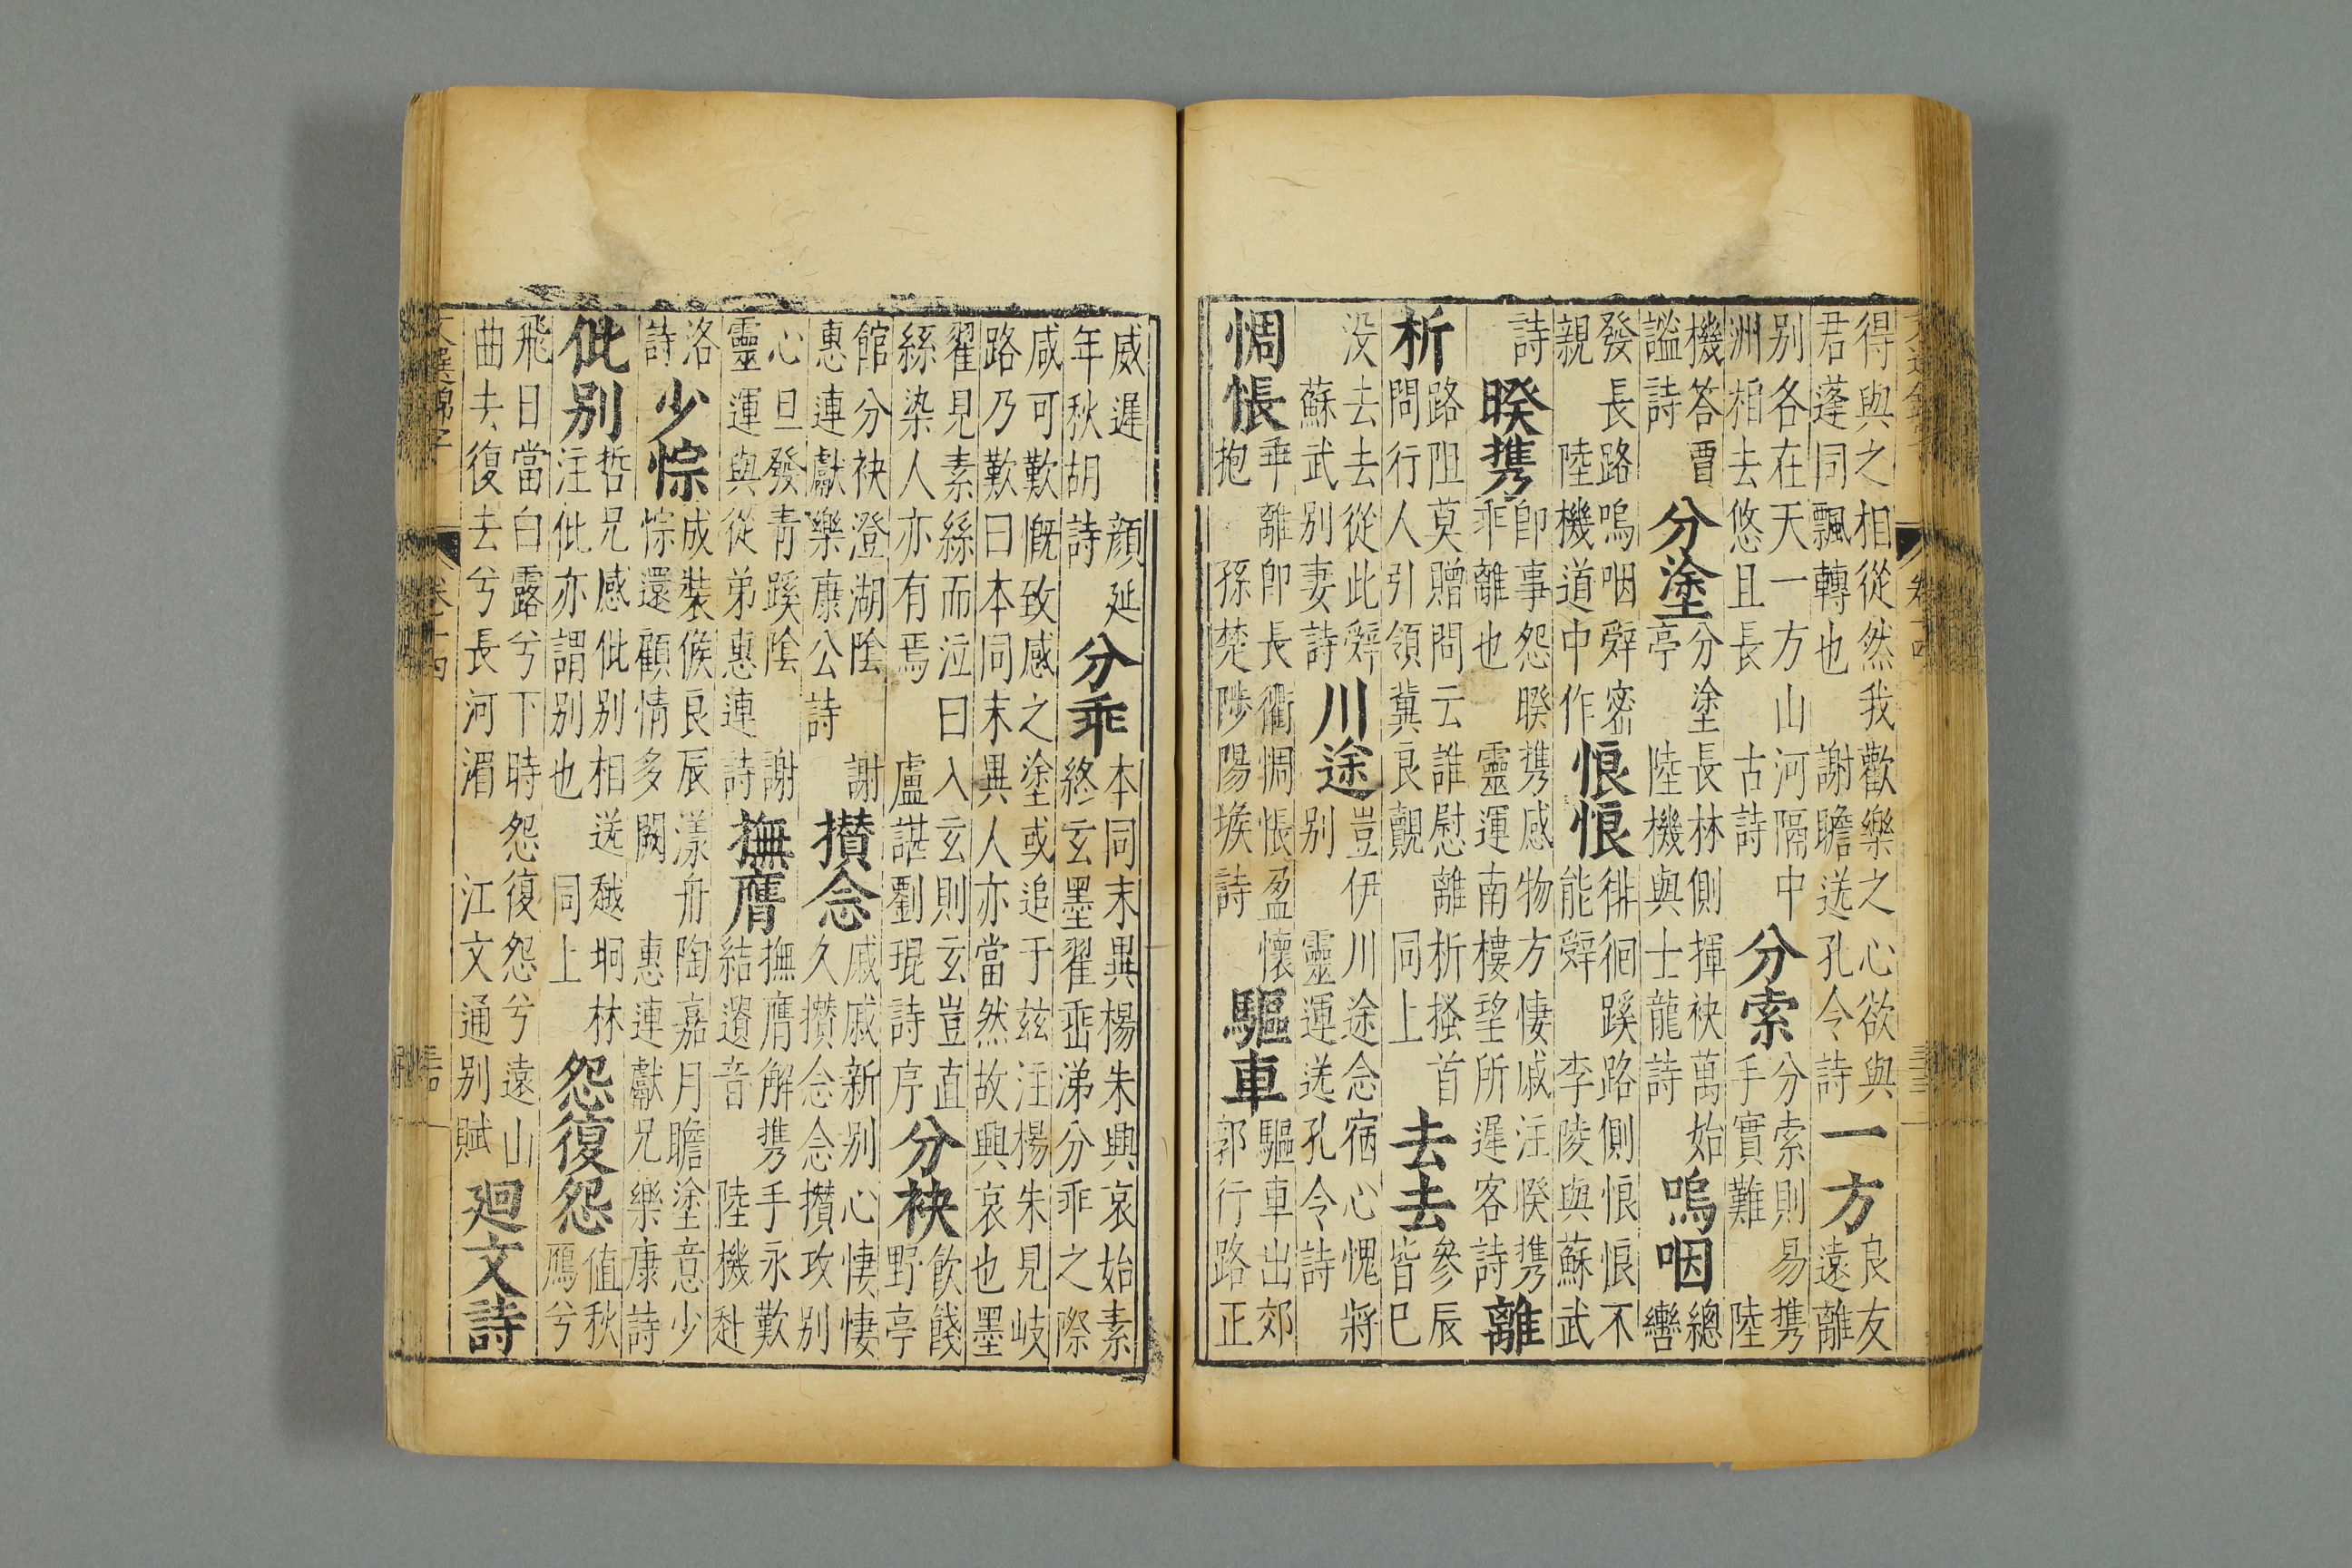 得與之相從然我歡樂之心欲與
君蓬同飄轉也 謝瞻送孔令詩
一方
良友
遠離
别各在天一方山河隔中
洲相去悠且長 古詩
分索
分索則易携
手實難 陸
機答賈
謐詩
分塗
分塗長林側揮袂萬始
亭 陸機與士龍詩
嗚咽
總
轡
發長路嗚咽辭密
親 陸機道中作
悢悢
徘徊蹊路側悢悢不
能辭 李陵與蘇武
詩
暌携
即事怨暌携感物方悽戚注暌携
乖離也 靈運南樓望所遲客詩
離
析
路阻莫贈問云誰慰離析搔首
問行人引領冀良覿 同上
去去
參辰
皆已
没去去從此辭
蘇武别妻詩
川途
豈伊川途念宿心愧將
别 靈運送孔令詩
惆悵
乖離即長衢惆悵盈懷
抱 孫楚陟陽堠詩
驅車
驅車出郊
郭行路正
威遲 顔延
年秋胡詩
分乖
本同末異楊朱興哀始素
終玄墨翟垂涕分乖之際
咸可歎慨致感之塗或追于兹注楊朱見岐
路乃歎曰本同末異人亦當然故興哀也墨
翟見素絲而泣曰入玄則玄豈直
絲染人亦有焉 盧諶劉琨詩序
分袂
飲餞
野亭
館分袂澄湖陰 謝
惠連獻樂康公詩
攅念
戚戚新别心悽悽
久攅念念攅攻别
心旦發青蹊陰 謝
靈運與從弟惠連詩
撫膺
撫膺解携手永歎
結遺音 陸機赴
洛
詩
少悰
成裝候良辰漾舟陶嘉月瞻塗意少
悰還顧情多闕 惠連獻兄樂康詩
仳别
哲兄感仳别相送越坰林
注仳亦謂别也 同上
怨復怨
值秋
鴈兮
飛日當白露兮下時怨復怨兮遠山
曲去復去兮長河湄 江文通别賦
廻文詩
文選錦字 卷十四